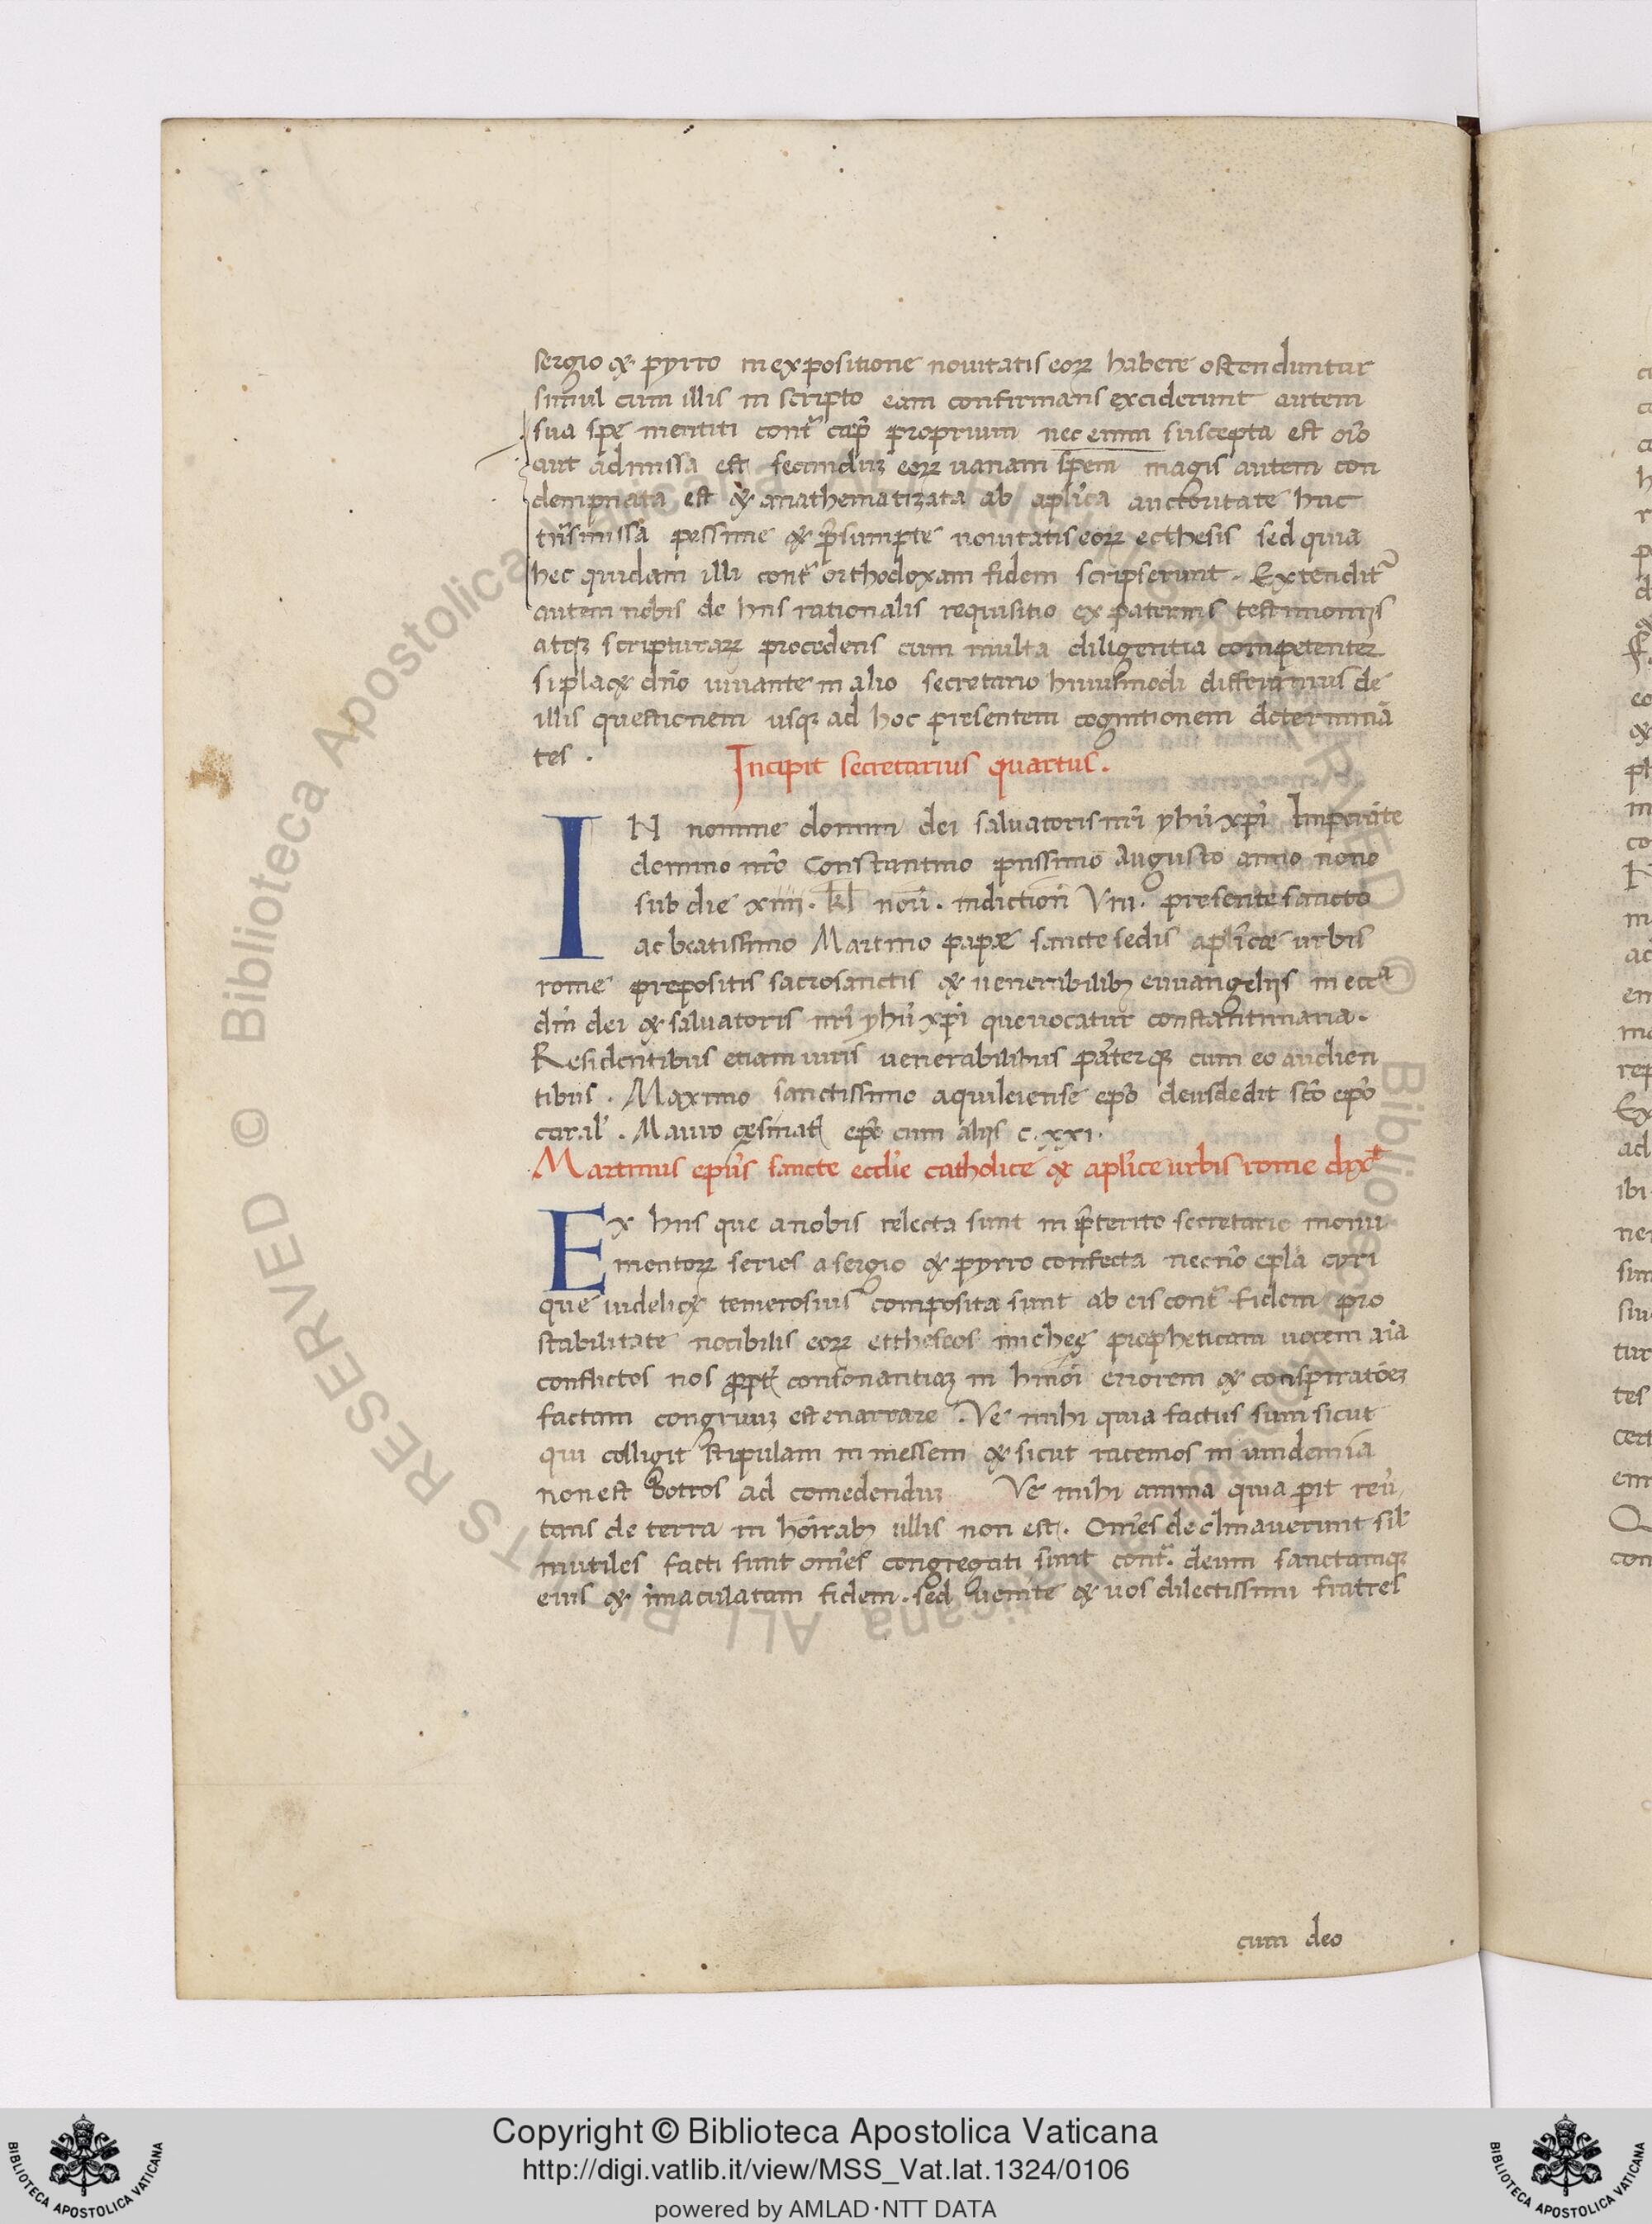 sergio & pyrro in expositione nouitatis eoꝝ habere ostenduntur
simul cum illis in scripto eam confirmans exciderunt autem
sua spe mentiti contᵃ cap̄ proprium nec enim suscepta est oīo
aut admissa est secunduꝫ eoꝝ uanam spem magis autem con
dempnata est & anathematizata ab aplīca auctoritate huc
trāsmissa pessime & p̄sumpte nouitatis eoꝝ ecthesis sed quia
hec quidam illi contᵃ orthodoxam fidem scripserunt. Extendit᷑
autem nobis de hiis rationalis requisitio ex paternis testimoniis
atqꝫ scripturaꝝ procedens cum multa diligentia competenter
si pla& dn̄o iuuante in alio secretario huiusmodi differamus de
illis questionem usqꝫ ad hoc presentem cognitionem determinā
tes.
Incipit secretarius quartus.
IN nomine domini dei saluatoris nr̄i yhū xp̄i Imperāte
domino nr̄o Constantino piissimo augusto anno nono
sub die xiiii. kl̄ nou̅. indiction̄ Viii. presente sancto
ac beatissimo Martino papæ sancte sedis aplīcæ urbis
rome prepositis sacrosanctis & ueneribilibꝫ euuangeliis in ecc̄ᵃ
dn̄i dei & saluatoris nr̄i yhū xp̄i que uocatur constantiniana.
Residentibus etiam uiris uenerabilibus pariterqꝫ cum eo audien
tibus. Maximo sanctissimo aquileiense ep̄o deusdedit sc̄o ep̄o
caral̄. Mauro cęsinat̄ ep̄o cum aliis c.xxi.
Martinus ep̄us sancte eccl̄ie catholice & aplīce urbis rome dix̄ᵗ
Ex hiis que a nobis relecta sunt in p̄terito secretario monu
mentoꝝ series a sergio & pyrro confecta necnō epl̄a cyri
que uideli& temerosius composita sunt ab eis contᵃ fidem pro
stabilitate nocibilis eoꝝ ettheseos micheę propheticam uocem aīa
conflictos nos propt̄ consonantiaꝫ in hmōi errorem & conspiratōeꝫ
factam congruuꝫ est enarrare. Ve mihi quia factus sum sicut
qui colligit stipulam in messem & sicut racemos in uindemia
non est botros ad comedenduꝫ Ve mihi anima quia perit reu̅
tans de terra in hoīrabꝫ illis non est. Om̄es declinauerunt sil̄
inutiles facti sunt om̄es congregati sunt contᵃ deum sanctamqꝫ
eius & īmaculatam fidem. sed uenite & uos dilectissimi fratres
cum deo
© Biblioteca Apostolica Vaticana ALL RIGHTS RESERVED
Copyright © Biblioteca Apostolica Vaticana
http://digi.vatlib.it/view/MSS_Vat.lat.1324/0106
powered by AMLAD·NTT DATA
BIBLIOTECA APOSTOLICA VATICANA
BIBLIOTECA APOSTOLICA VATICANA